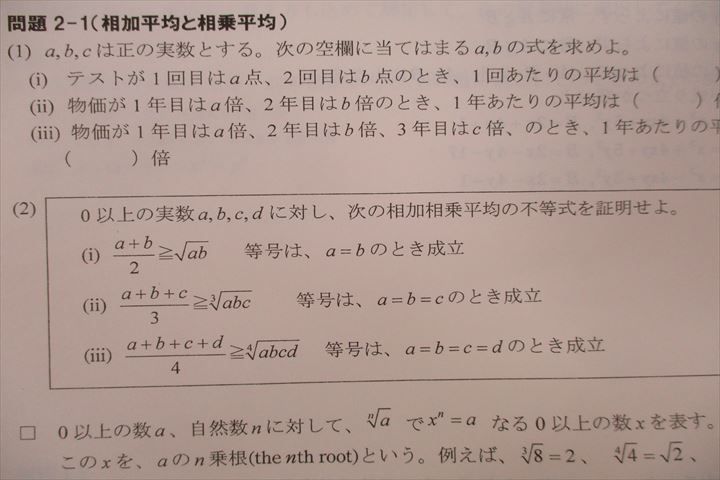 問題 2-1(相加平均と相乗平均)
(1) a, b, c は正の実数とする。次の空欄に当てはまる a, b の式を求めよ。
(i) テストが 1 回目は a 点、2 回目は b 点のとき、1 回あたりの平均は (
(ii) 物価が 1 年目は a 倍、2 年目は b 倍のとき、1 年あたりの平均は ( )
(iii) 物価が 1 年目は a 倍、2 年目は b 倍、3 年目は c 倍、のとき、1 年あたりの平
( ) 倍
(2) 0 以上の実数 a, b, c, d に対し、次の相加相乗平均の不等式を証明せよ。
(i) (a+b)/2 ≧ √ab 等号は、a = b のとき成立
(ii) (a+b+c)/3 ≧ ∛abc 等号は、a = b = c のとき成立
(iii) (a+b+c+d)/4 ≧ ∜abcd 等号は、a = b = c = d のとき成立
□ 0 以上の数 a、自然数 n に対して、ⁿ√a で xⁿ = a なる 0 以上の数 x を表す。
この x を、a の n 乗根(the nth root)という。例えば、∛8 = 2、∜4 = √2、